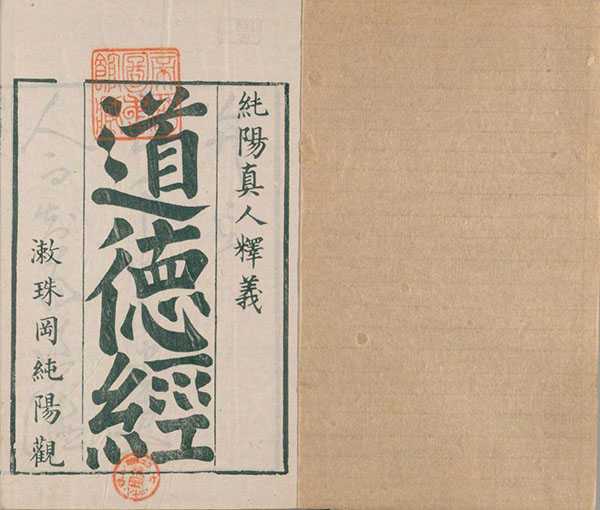 純陽真人釋義
道德經
漱珠岡純陽觀